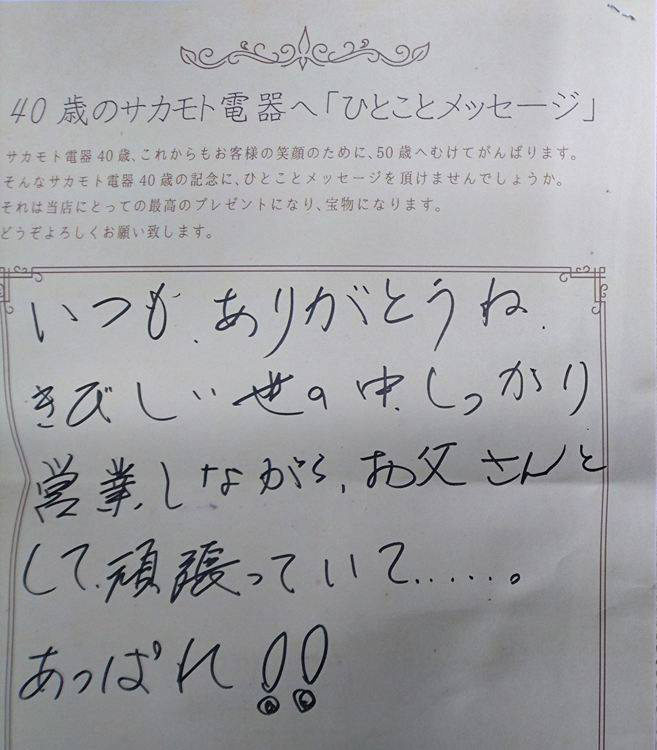 40歳のサカモト電器へ「ひとことメッセージ」
サカモト電器40歳、これからもお客様の笑顔のために、50歳へむけてがんばります。
そんなサカモト電器40歳の記念に、ひとことメッセージを頂けませんでしょうか。
それは当店にとっての最高のプレゼントになり、宝物になります。
どうぞよろしくお願い致します。
いつも、ありがとうね.
きびしい世の中、しっかり
営業しながら、お父さんと
して、頑張っていて......。
あっぱれ!!